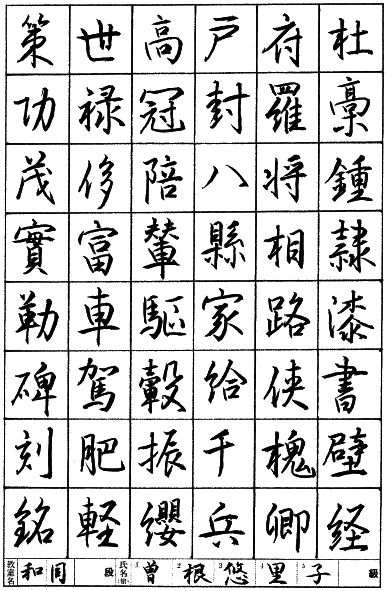 杜稾鍾隷漆書壁経
府羅将相路侠槐卿
戸封八縣家給千兵
高冠陪輦驅轂振纓
世禄侈富車駕肥軽
策功茂實勒碑刻銘
教室名 和同 段 氏名(号) 1曽 2根 3悠 4里 5子 級